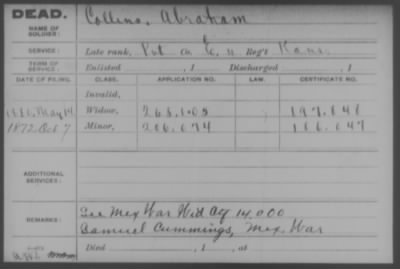 DEAD.
NAME OF SOLDIER: Collins, Abraham
SERVICE: Late rank, Pvt Co. E, 11 Reg't Kans.
TERM OF SERVICE: Enlisted , 1 Discharged , 1
DATE OF FILING. CLASS. APPLICATION NO. LAW. CERTIFICATE NO.
Invalid,
May 14 Widow, 268.105 197.848
1872 Oct 7 Minor, 206.074 186.047
ADDITIONAL SERVICES:
REMARKS: See Mex War Wid Ctf 14.000
Samuel Cummings, Mex. War
Died , 1 , at